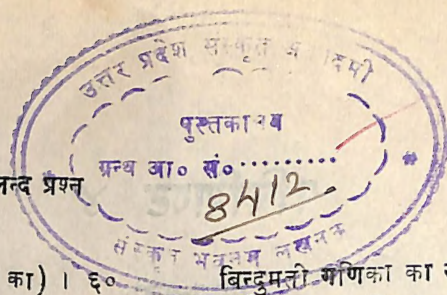 उत्तर प्रदेश संस्कृत अकादमी
पुस्तकालय
ग्रन्थ आ० सं०.........
8412
न्द प्रश्न
संस्कृत भवनम लखनऊ
का) । ६० बिन्दुमती गणिका का